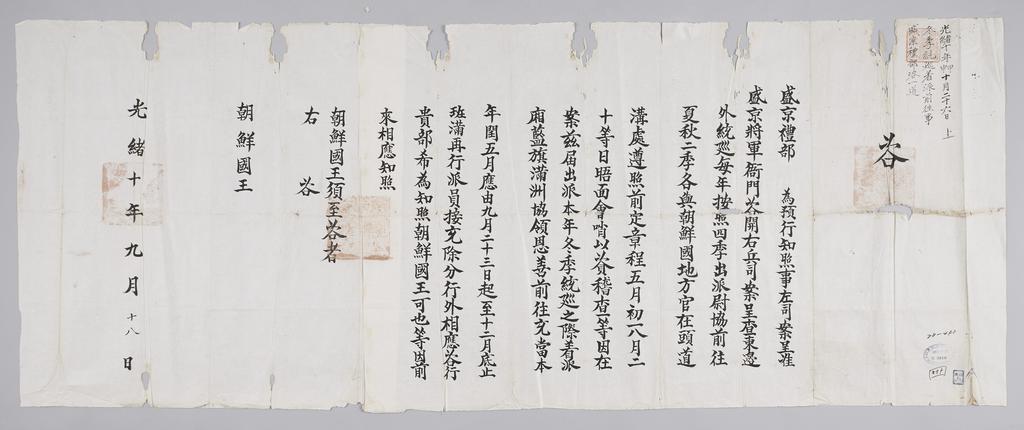 光緖十年甲申十月二十六日 上
冬季統巡着派前往事
盛京禮部咨一道
咨
盛京禮部 為預行知照事左司案呈准
盛京將軍衙門咨開右兵司案呈查東邊
外統巡每年按照四季出派尉協前往
夏秋二季各與朝鮮國地方官在頭道
溝處遵照前定章程五月初一八月二
十等日晤面會哨以資稽查等因在
案兹屆出派本年冬季統巡之際着派
廂藍旗滿洲協領恩善前往充當本
年閏五月應由九月二十三日起至十二月底止
班滿再行派員接充除分行外相應咨行
貴部希為知照朝鮮國王可也等因前
來相應知照
朝鮮國王須至咨者
右 咨
朝鮮國王
光緖十年九月十八日